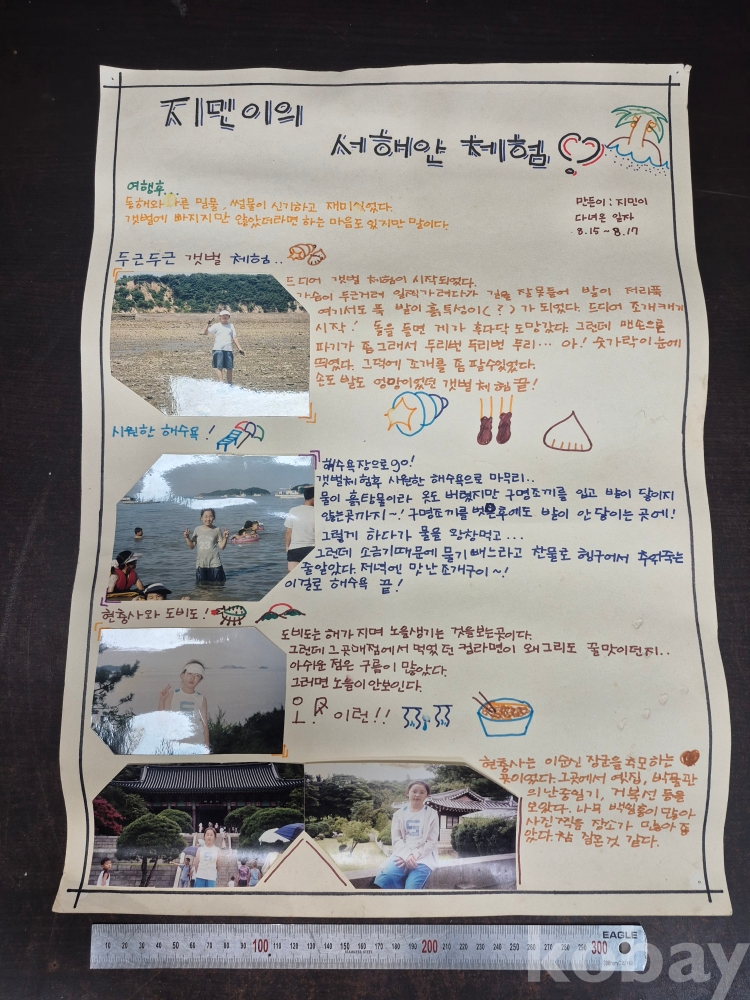 지민이의
서해안 체험
여행후...
동해와 다른 밀물, 썰물이 신기하고 재미있었다.
갯벌에 빠지지만 않았더라면 하는 마음도 있지만 말이다.
만든이 : 지민이
다녀온 일자
8.15 ~ 8.17
두근두근 갯벌 체험..
드디어 갯벌 체험이 시작되었다.
가슴이 두근거려 일찍가려다가 길을 잘못들어 발이 저리푹
여기서도 푹 발이 흙투성이(?)가 되었다. 드디어 조개캐기
시작! 돌을 들면 게가 후다닥 도망갔다. 그런데 맨손으로
파기가 좀 그래서 두리번 두리번 두리... 아! 숟가락이 눈에
띄였다. 그덕에 조개를 좀 팔수있었다.
손도 발도 엉망이었던 갯벌 체험 끝!
시원한 해수욕!
해수욕장으로 go!
갯벌체험후 시원한 해수욕으로 마무리..
물이 흙탕물이라 옷도 버렸지만 구명조끼를 입고 발이 닿이지
않는곳까지~! 구명조끼를 벗은후에도 발이 안닿이는 곳에!
그렇게 하다가 물을 왕창먹고...
그런데 소금기때문에 물기빼느라고 찬물로 헹구에서 추워죽는
줄알았다. 저녁에 맛난 조개구이~!
이걸로 해수욕 끝!
현충사와 도비도!
도비도는 해가지며 노을생기는 것을보는곳이다.
그런데 그곳매점에서 먹었던 컵라면이 왜그리도 꿀맛이던지..
아쉬운 점은 구름이 많았다.
그러면 노을이안보인다.
이런!!
현충사는 이순신 장군을 추모하는
곳이었다. 그곳에서 옛집, 박물관
의난중일기, 거북선 등을
보았다. 나무 백일홍이 많아
사진 찍을 장소가 많아 좋
았다. 참 깊은것 같다.
EAGLE
10 20 30 40 50 60 70 80 90 100 110 120 130 140 150 160 170 180 190 200 210 220 230 240 250 260 270 280 290 300
STAINLESS STEEL
kobay